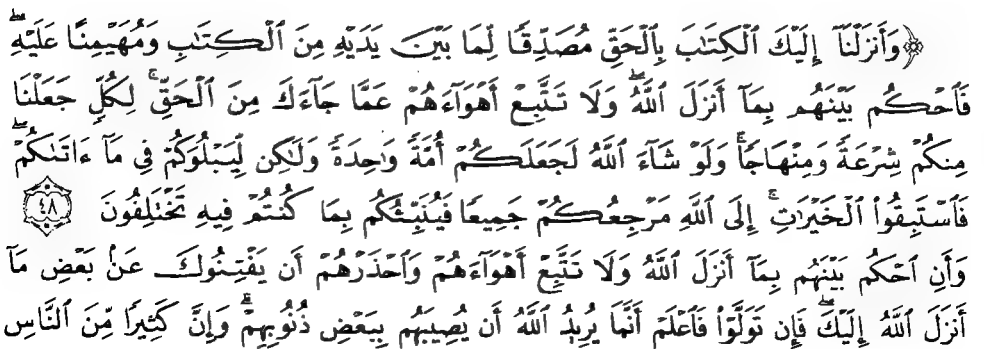 ۞وَأَنزَلْنَآ إِلَيْكَ ٱلْكِتَٰبَ بِٱلْحَقِّ مُصَدِّقًا لِّمَا بَيْنَ يَدَيْهِ مِنَ ٱلْكِتَٰبِ وَمُهَيْمِنًا عَلَيْهِۖ
فَٱحْكُم بَيْنَهُم بِمَآ أَنزَلَ ٱللَّهُۖ وَلَا تَتَّبِعْ أَهْوَآءَهُمْ عَمَّا جَآءَكَ مِنَ ٱلْحَقِّۚ لِكُلٍّ جَعَلْنَا
مِنكُمْ شِرْعَةً وَمِنْهَاجًاۚ وَلَوْ شَآءَ ٱللَّهُ لَجَعَلَكُمْ أُمَّةً وَٰحِدَةً وَلَٰكِن لِّيَبْلُوَكُمْ فِى مَآ ءَاتَىٰكُمْۖ
فَٱسْتَبِقُوا۟ ٱلْخَيْرَٰتِۚ إِلَى ٱللَّهِ مَرْجِعُكُمْ جَمِيعًا فَيُنَبِّئُكُم بِمَا كُنتُمْ فِيهِ تَخْتَلِفُونَ ٤٨
وَأَنِ ٱحْكُم بَيْنَهُم بِمَآ أَنزَلَ ٱللَّهُ وَلَا تَتَّبِعْ أَهْوَآءَهُمْ وَٱحْذَرْهُمْ أَن يَفْتِنُوكَ عَنۢ بَعْضِ مَآ
أَنزَلَ ٱللَّهُ إِلَيْكَۖ فَإِن تَوَلَّوْا۟ فَٱعْلَمْ أَنَّمَا يُرِيدُ ٱللَّهُ أَن يُصِيبَهُم بِبَعْضِ ذُنُوبِهِمْۗ وَإِنَّ كَثِيرًا مِّنَ ٱلنَّاسِ